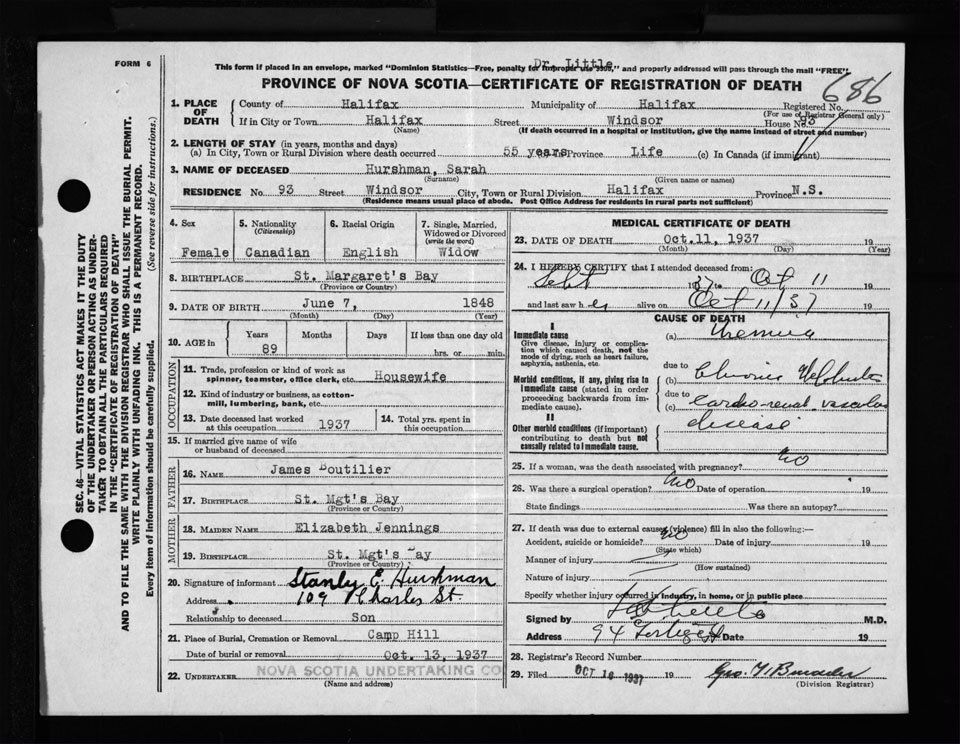 FORM 6
Dr. Little
This form if placed in an envelope, marked "Dominion Statistics—Free, penalty for improper use $300," and properly addressed will pass through the mail "FREE".
PROVINCE OF NOVA SCOTIA—CERTIFICATE OF REGISTRATION OF DEATH
686
1. PLACE OF DEATH
County of Halifax Municipality of Halifax Registered No.
(For use of Registrar General only)
If in City or Town Halifax Street Windsor House No. 93
(Name) (If death occurred in a hospital or institution, give the name instead of street and number)
2. LENGTH OF STAY (in years, months and days)
(a) In City, Town or Rural Division where death occurred 55 years Province Life (c) In Canada (if immigrant)
3. NAME OF DECEASED Hurshman, Sarah
(Surname) (Given name or names)
RESIDENCE No. 93 Street Windsor City, Town or Rural Division Halifax Province N.S.
(Residence means usual place of abode. Post Office Address for residents in rural parts not sufficient)
4. Sex
Female
5. Nationality
(Citizenship)
Canadian
6. Racial Origin
English
7. Single, Married, Widowed or Divorced
(write the word)
Widow
8. BIRTHPLACE St. Margaret's Bay
(Province or Country)
9. DATE OF BIRTH June 7, 1848
(Month) (Day) (Year)
10. AGE in Years Months Days If less than one day old
89 hrs. or min.
OCCUPATION
11. Trade, profession or kind of work as
spinner, teamster, office clerk, etc. Housewife
12. Kind of industry or business, as cotton-
mill, lumbering, bank, etc.
13. Date deceased last worked
at this occupation 1937
14. Total yrs. spent in
this occupation
15. If married give name of wife
or husband of deceased
FATHER
16. NAME James Boutilier
17. BIRTHPLACE St. Mgt's Bay
(Province or Country)
MOTHER
18. MAIDEN NAME Elizabeth Jennings
19. BIRTHPLACE St. Mgt's Bay
(Province or Country)
20. Signature of informant Stanly E. Hurshman
Address 109 Charles St.
Relationship to deceased Son
21. Place of Burial, Cremation or Removal Camp Hill
Date of burial or removal Oct. 13, 1937
22. UNDERTAKER NOVA SCOTIA UNDERTAKING CO
(Name and address)
MEDICAL CERTIFICATE OF DEATH
23. DATE OF DEATH Oct. 11, 1937 19
(Month) (Day) (Year)
24. I HEREBY CERTIFY that I attended deceased from:
Sept 1937 to Oct 11 19
and last saw her alive on Oct 11/37 19
CAUSE OF DEATH
I
Immediate cause
Give disease, injury or complica-
tion which caused death, not the
mode of dying, such as heart failure,
asphyxia, asthenia, etc.
(a) Uremia
due to
Morbid conditions, if any, giving rise to
immediate cause (stated in order
proceeding backwards from im-
mediate cause).
(b) Chronic Nephritis
due to
(c) cardio-renal vascular
disease
II
Other morbid conditions (if important)
contributing to death but not
causally related to immediate cause.
25. If a woman, was the death associated with pregnancy? No
26. Was there a surgical operation? No Date of operation 19
State findings Was there an autopsy?
27. If death was due to external causes (violence) fill in also the following:—
Accident, suicide or homicide? No Date of injury 19
(State which)
Manner of injury
(How sustained)
Nature of injury
Specify whether injury occurred in industry, in home, or in public place
Signed by M.D.
Address 94 Date 19
28. Registrar's Record Number
29. Filed OCT 16 1937 19
(Division Registrar)
SEC. 46—VITAL STATISTICS ACT MAKES IT THE DUTY
OF THE UNDERTAKER OR PERSON ACTING AS UNDER-
TAKER TO OBTAIN ALL THE PARTICULARS REQUIRED
IN THE "CERTIFICATE OF REGISTRATION OF DEATH"
AND TO FILE THE SAME WITH THE DIVISION REGISTRAR WHO SHALL ISSUE THE BURIAL PERMIT.
WRITE PLAINLY WITH UNFADING INK. THIS IS A PERMANENT RECORD.
Every item of information should be carefully supplied. (See reverse side for instructions.)